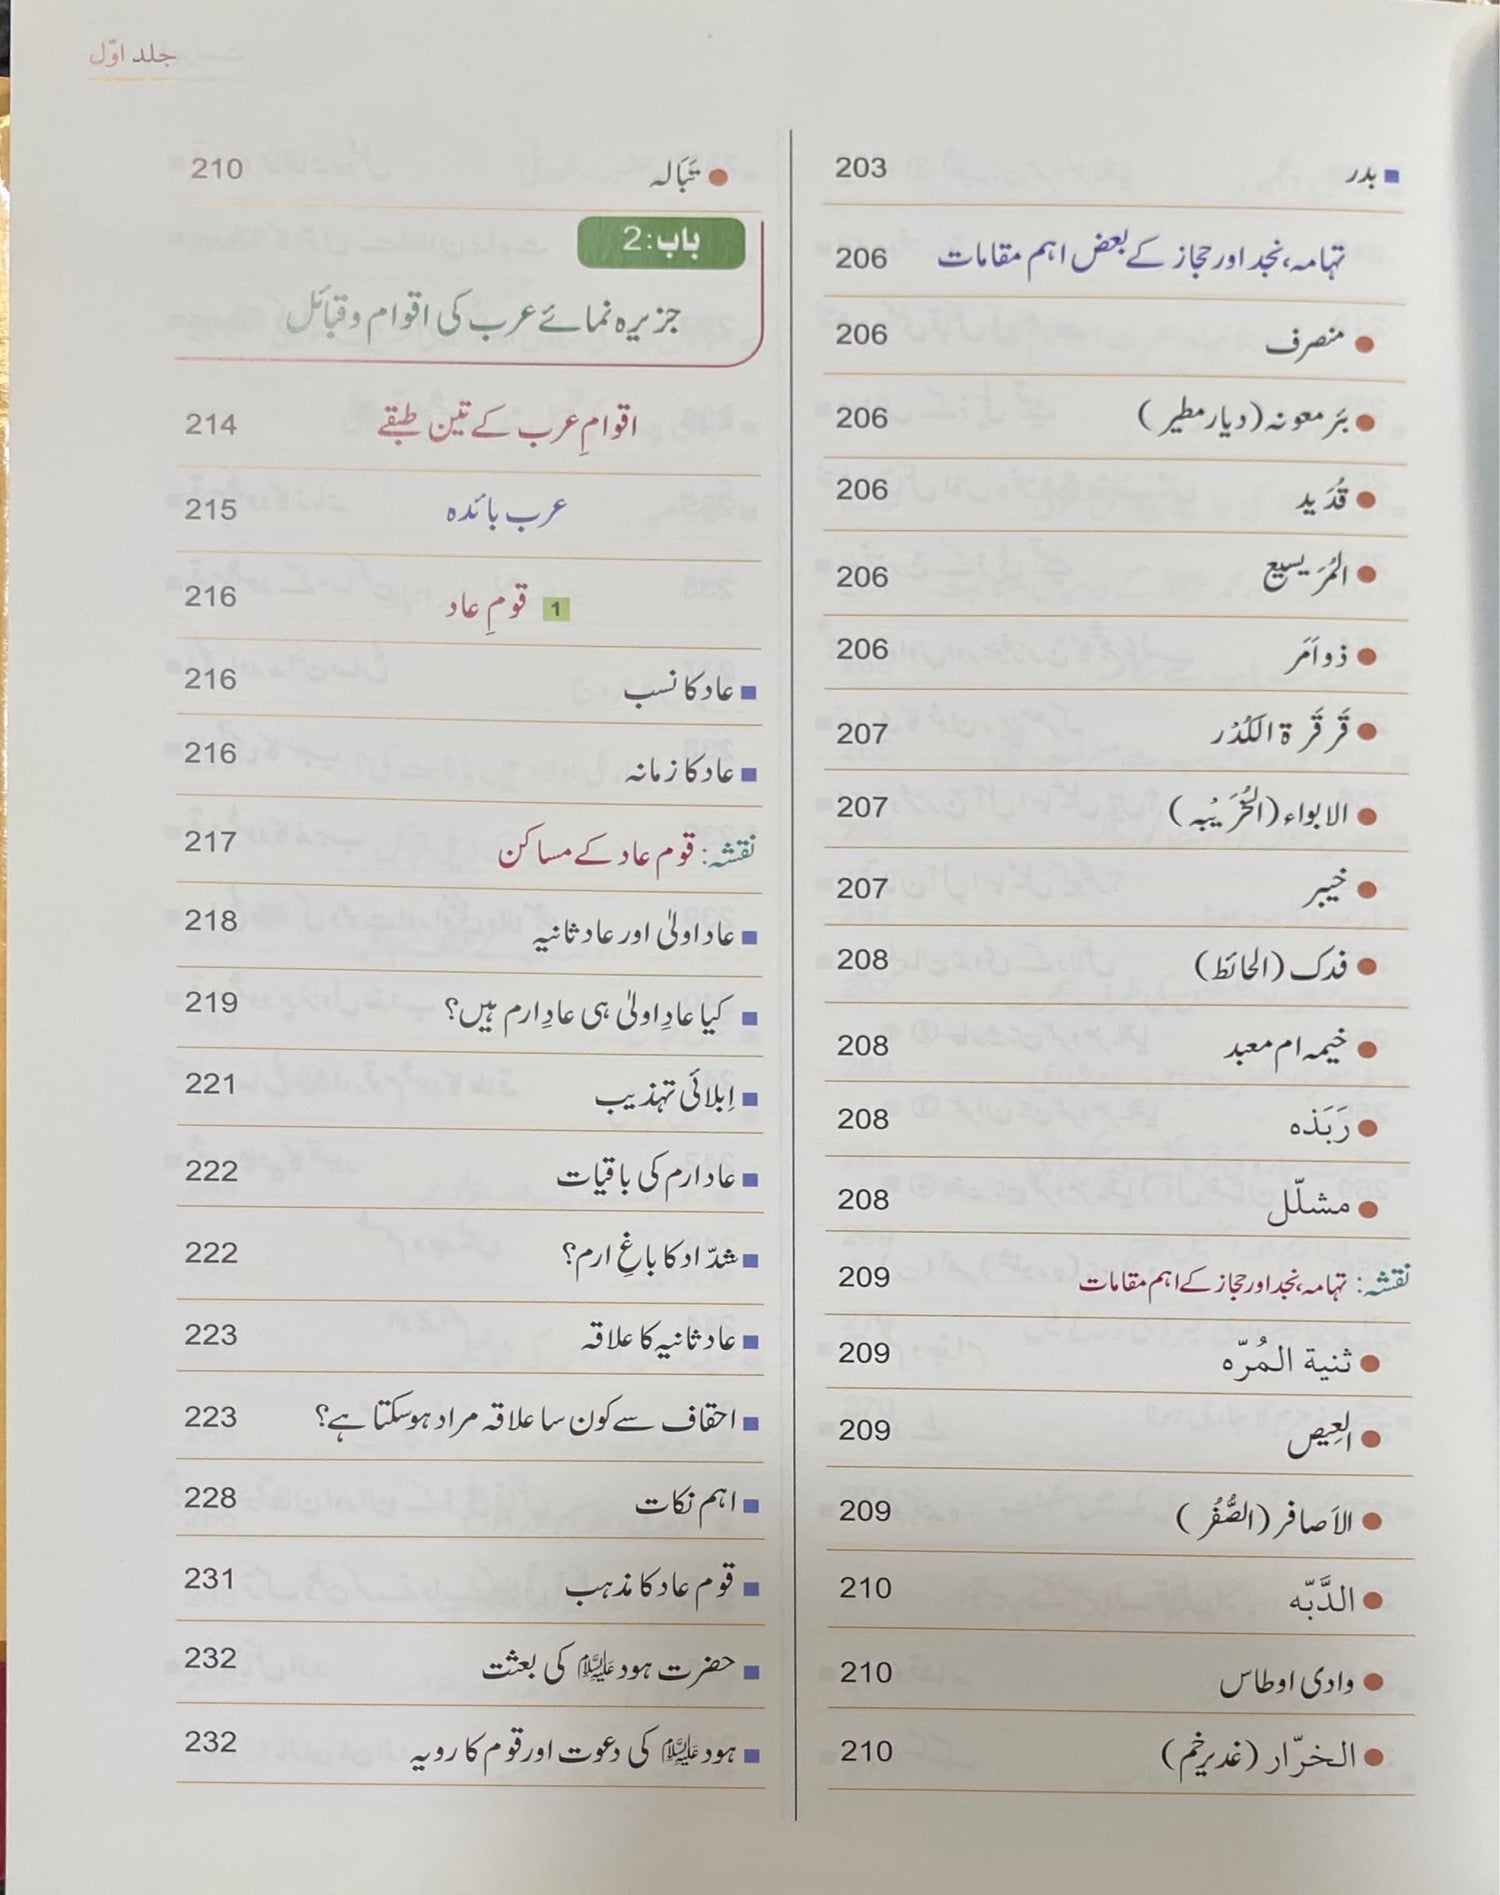 جلد اوّل
بدر 203
تہامہ، نجد اور حجاز کے بعض اہم مقامات 206
منصرف 206
بئر معونہ (دیار مطیر) 206
قُدَید 206
المُرَیسیع 206
ذو اَمَر 206
قَرقَرۃ الکُدْر 207
الابواء (الخُرَیْبہ) 207
خیبر 207
فدک (الحائط) 208
خیمہ ام معبد 208
رَبَذہ 208
مشلّل 208
نقشہ: تہامہ، نجد اور حجاز کے اہم مقامات 209
ثنیة المُرّہ 209
العِیص 209
الاَصافر (الصُّفُر) 209
الدَّبّہ 210
وادی اوطاس 210
الخرّار (غدیر خم) 210
تَبَالہ 210
باب: 2
جزیرہ نمائے عرب کی اقوام و قبائل
اقوامِ عرب کے تین طبقے 214
عرب بائدہ 215
1 قومِ عاد 216
عاد کا نسب 216
عاد کا زمانہ 216
نقشہ: قوم عاد کے مساکن 217
عاد اولیٰ اور عاد ثانیہ 218
کیا عادِ اولیٰ ہی عادِ ارم ہیں؟ 219
اِبلائی تہذیب 221
عاد ارم کی باقیات 222
شدّاد کا باغِ ارم؟ 222
عاد ثانیہ کا علاقہ 223
احقاف سے کون سا علاقہ مراد ہو سکتا ہے؟ 223
اہم نکات 228
قوم عاد کا مذہب 231
حضرت ہود علیہ السلام کی بعثت 232
ہود علیہ السلام کی دعوت اور قوم کا رویہ 232